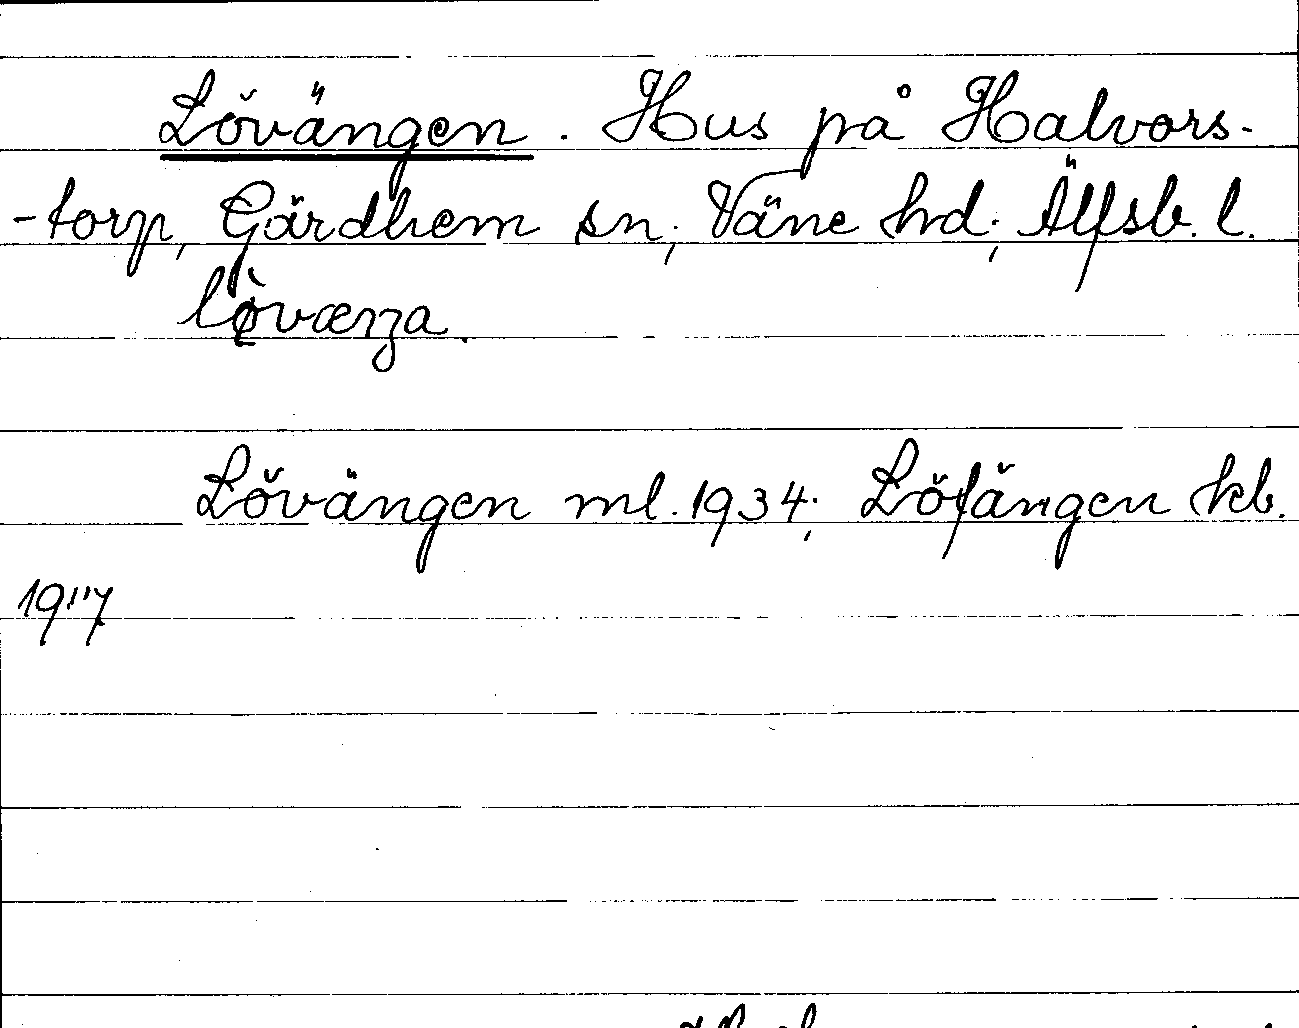 Lövängen. Hus på Halvors-
-torp, Gärdhem sn; Väne hd; Älfsb. l.
Lövängen ml. 1934; Löfängen kb.